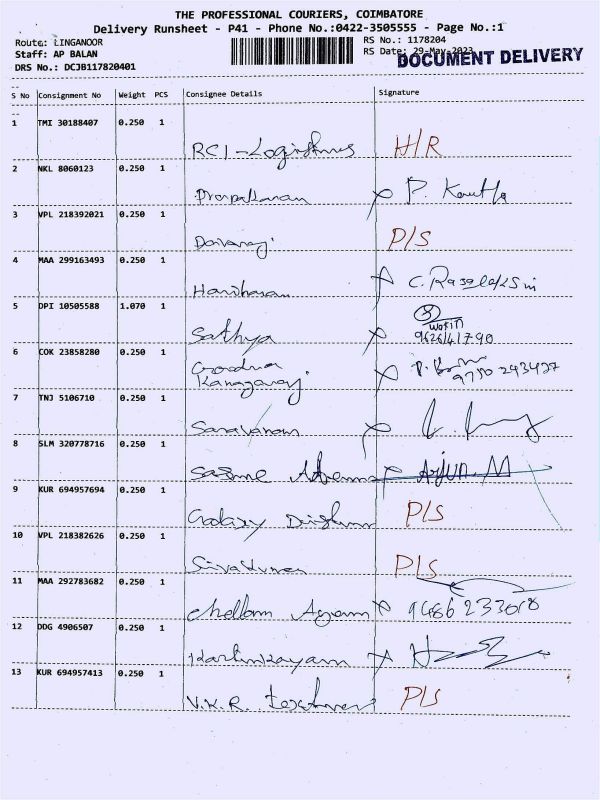 THE PROFESSIONAL COURIERS, COIMBATORE
Delivery Runsheet - P41 - Phone No.:0422-3505555 - Page No.:1
Route: LINGANOOR
RS No.: 1178204
Staff: AP BALAN
RS Date: 29-May-2023
DOCUMENT DELIVERY
DRS No.: DCJB117820401
S No Consignment No Weight PCS Consignee Details Signature
1 TMI 30188407 0.250 1
RCI-Logistics H/R
2 NKL 8060123 0.250 1
Prapakaran P.
3 VPL 218392021 0.250 1
P/S
4 MAA 299163493 0.250 1
Hariharan C.
5 DPI 10505588 1.070 1
Sathya 9626141790
6 COK 23858280 0.250 1
Kanagaraj 9750 293427
7 TNJ 5106710 0.250 1
Saravanan
8 SLM 320778716 0.250 1
Arjun. M
9 KUR 694957694 0.250 1
Galaxy P/S
10 VPL 218382626 0.250 1
Sivakumar P/S
11 MAA 292783682 0.250 1
Chellam
12 DDG 4906507 0.250 1
Karthikayani
13 KUR 694957413 0.250 1
V.K.R. P/S